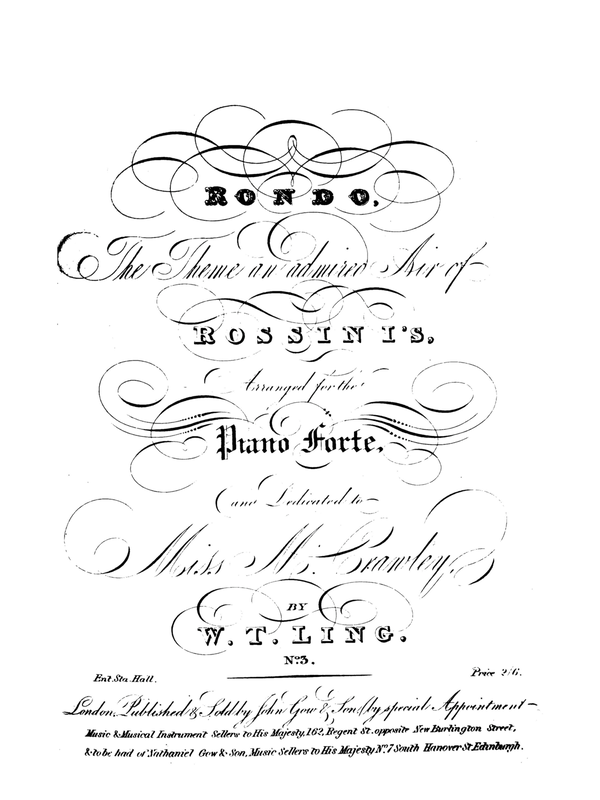 RONDO,
The Theme an admired Air of
ROSSINI'S,
Arranged for the
Piano Forte,
and Dedicated to
Miss M. Crawley,
BY
W. T. LING.
No. 3.
Ent. Sta. Hall. Price 2/6.
London, Published & Sold by John Gow & Son, (by special Appointment
Music & Musical Instrument Sellers to His Majesty, 162, Regent St. opposite New Burlington Street,
& to be had of Nathaniel Gow & Son, Music Sellers to His Majesty No. 7 South Hanover St. Edinburgh.